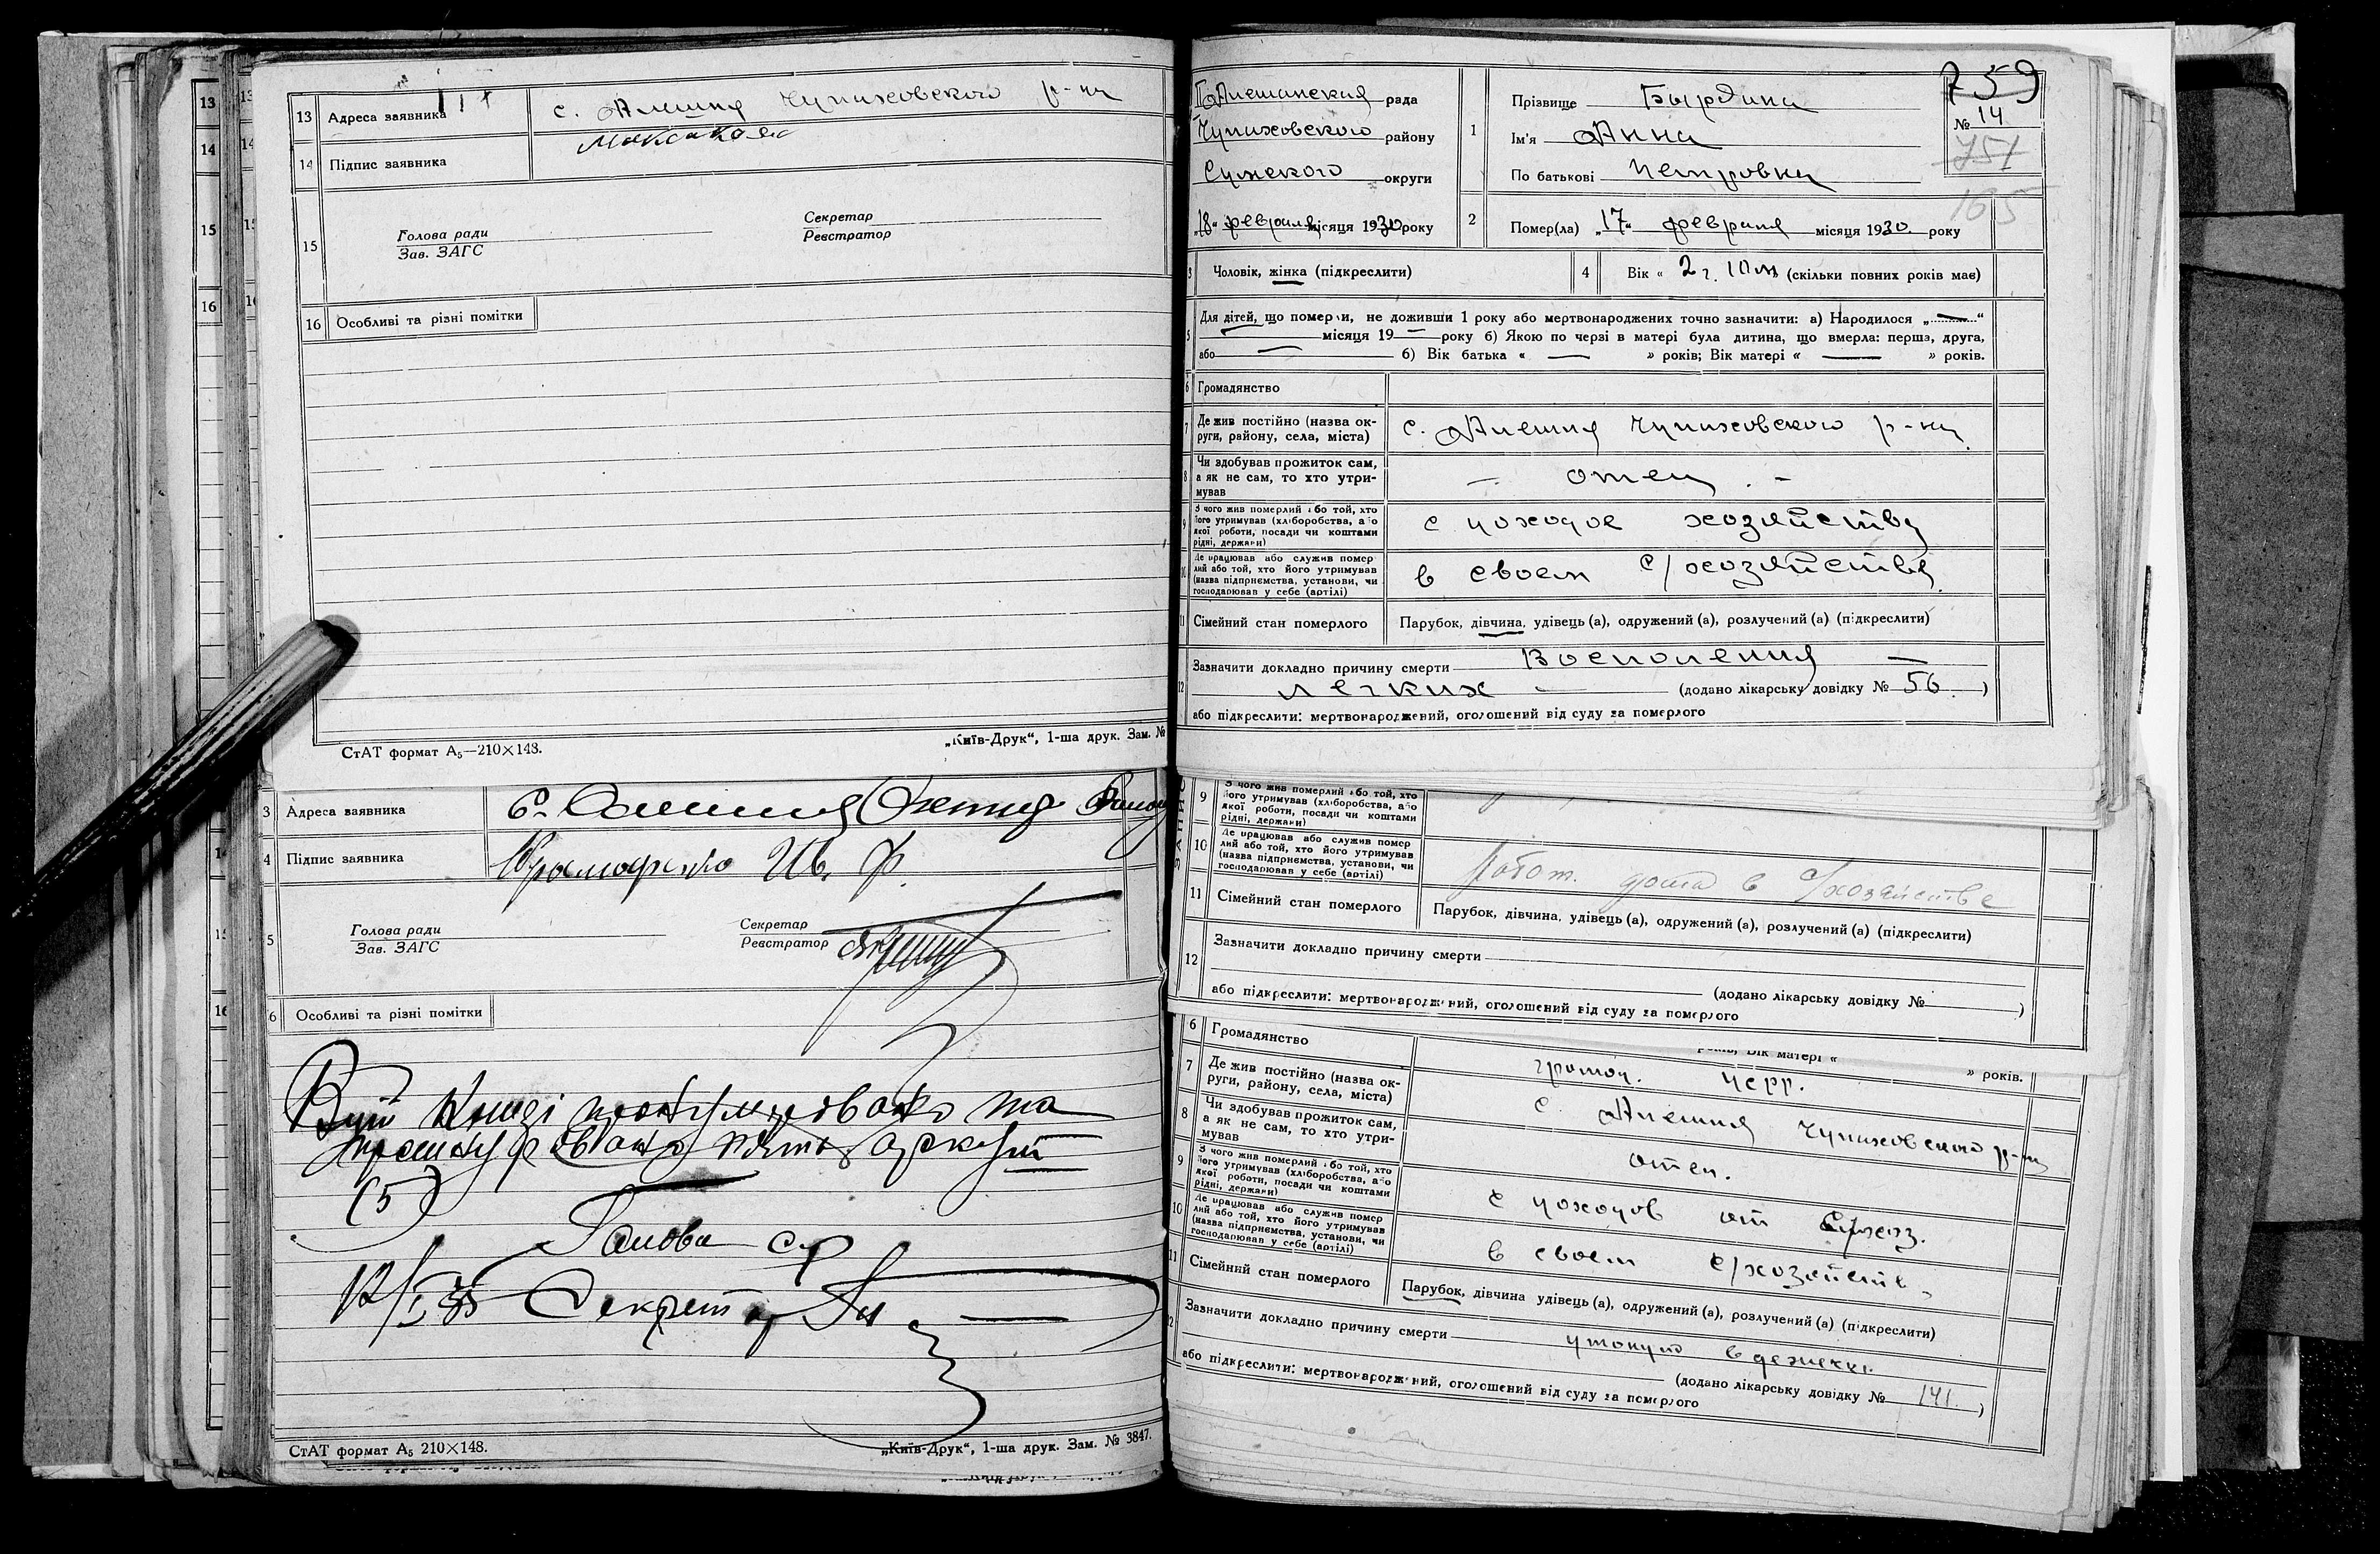 13 Адреса заявника с. Алешня Чупиховского р-на
14 Підпис заявника
15 Голова ради
Зав. ЗАГС
Секретар
Реєстратор
16 Особливі та різні помітки
СтАТ формат А₅—210×148.
„Київ-Друк“, 1-ша друк. Зам. №
3 Адреса заявника
4 Підпис заявника
5 Голова ради
Зав. ЗАГС
Секретар
Реєстратор
6 Особливі та різні помітки
(5)
Голова с/р
Секретар
СтАТ формат А₅ 210×148.
„Київ-Друк“, 1-ша друк. Зам. № 3847.
Алешанская рада
Чупиховского району
Сумского округи
„18“ февраля місяця 1930 року
759
№ 14
751
165
1 Прізвище Бырдина
Ім'я Анна
По батькові Петровна
2 Помер(ла) „17“ февраля місяця 1930 року
3 Чоловік, жінка (підкреслити)
4 Вік « 2 г. 10 м » (скільки повних років має)
5 Для дітей, що померли, не доживши 1 року або мертвонароджених точно зазначити: а) Народилося „ — “
— місяця 19 — року б) Якою по черзі в матері була дитина, що вмерла: перша, друга,
або — б) Вік батька « — » років; Вік матері « — » років.
6 Громадянство
7 Де жив постійно (назва ок-
руги, району, села, міста)
с. Алешня Чупиховского р-на
8 Чи здобував прожиток сам,
а як не сам, то хто утри-
мував
— отец. —
9 З чого жив померлий або той, хто
його утримував (хліборобства, або
якої роботи, посади чи коштами
рідні, держави)
с доходов хозяйства
10 Де працював або служив помер
лий або той, хто його утримував
(назва підприємства, установи, чи
господарював у себе (артілі)
в своем с/хозяйстве
11 Сімейний стан померлого
Парубок, дівчина, удівець (а), одружений (а), розлучений (а) (підкреслити)
12 Зазначити докладно причину смерти Восполения —
легких — (додано лікарську довідку № 56. )
або підкреслити: мертвонароджений, оголошений від суду за померлого
9 З чого жив померлий або той, хто
його утримував (хліборобства, або
якої роботи, посади чи коштами
рідні, держави)
10 Де працював або служив помер
лий або той, хто його утримував
(назва підприємства, установи, чи
господарював у себе (артілі)
работ. дома в с/хозяйстве
11 Сімейний стан померлого
Парубок, дівчина, удівець (а), одружений (а), розлучений (а) (підкреслити)
12 Зазначити докладно причину смерти
(додано лікарську довідку № )
або підкреслити: мертвонароджений, оголошений від суду за померлого
років; Вік матері « » років.
6 Громадянство
7 Де жив постійно (назва ок-
руги, району, села, міста)
с. Алешня Чупиховского р-на
8 Чи здобував прожиток сам,
а як не сам, то хто утри-
мував
отец.
9 З чого жив померлий або той, хто
його утримував (хліборобства, або
якої роботи, посади чи коштами
рідні, держави)
с доходов от с/хоз.
10 Де працював або служив помер
лий або той, хто його утримував
(назва підприємства, установи, чи
господарював у себе (артілі)
в своем с/хозяйств
11 Сімейний стан померлого
Парубок, дівчина удівець (а), одружений (а), розлучений (а) (підкреслити)
12 Зазначити докладно причину смерти утонул в
(додано лікарську довідку № 141. )
або підкреслити: мертвонароджений, оголошений від суду за померлого